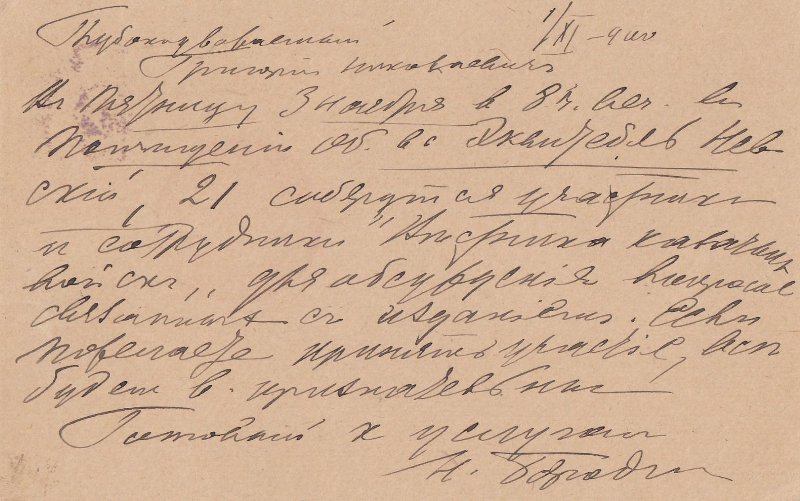 1/XI - 900
Глубокоуважаемый
Григорий Николаевич
Въ пятницу 3 ноября в 8 ч. веч. въ
помещении Об. въ Невскій, 21 соберутся участники
и сотрудники "Вестника казачьих
войскъ" для обсуждения вопросов
связанныхъ съ изданіемъ. Если
пожелаете принять участіе,
будем в. признательны
Готовый к услугам
Н. Бородин